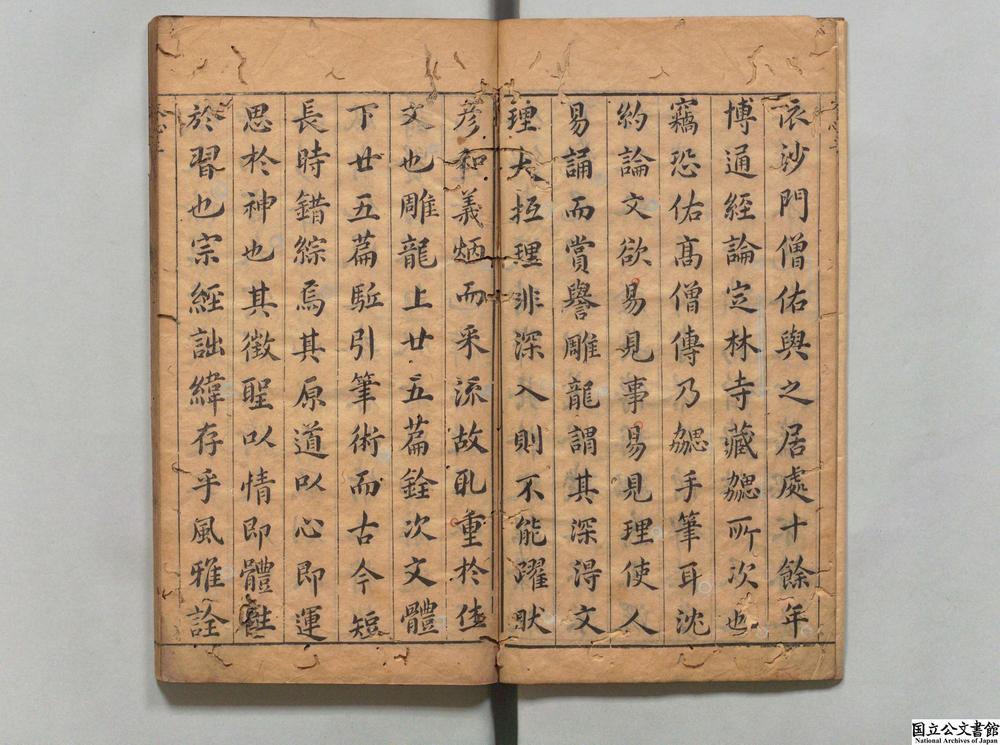 依沙門僧佑與之居處十餘年
博通經論定林寺藏勰所次也
竊恐佑高僧傳乃勰手筆耳沈
約論文欲易見事易見理使人
易誦而賞譽雕龍謂其深得文
理大抵理非深入則不能躍狀
彥和義炳而采流故取重於
文也雕龍上廿五篇銓次文體
下廿五篇駈引筆術而古今短
長時錯綜焉其原道以心即運
思於神也其徵聖以情即體性
於習也宗經詘緯存乎風雅詮
国立公文書館
National Archives of Japan